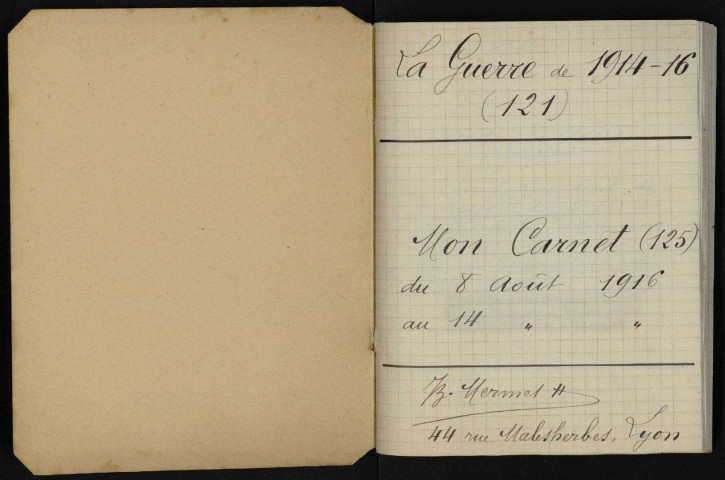 La Guerre de 1914-16
(121)
Mon Carnet (125)
du 8 Août 1916
au 14 " "
B. Mermet
44 rue Malesherbes, Lyon